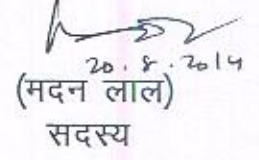 20.8.2014
(मदन लाल)
सदस्य